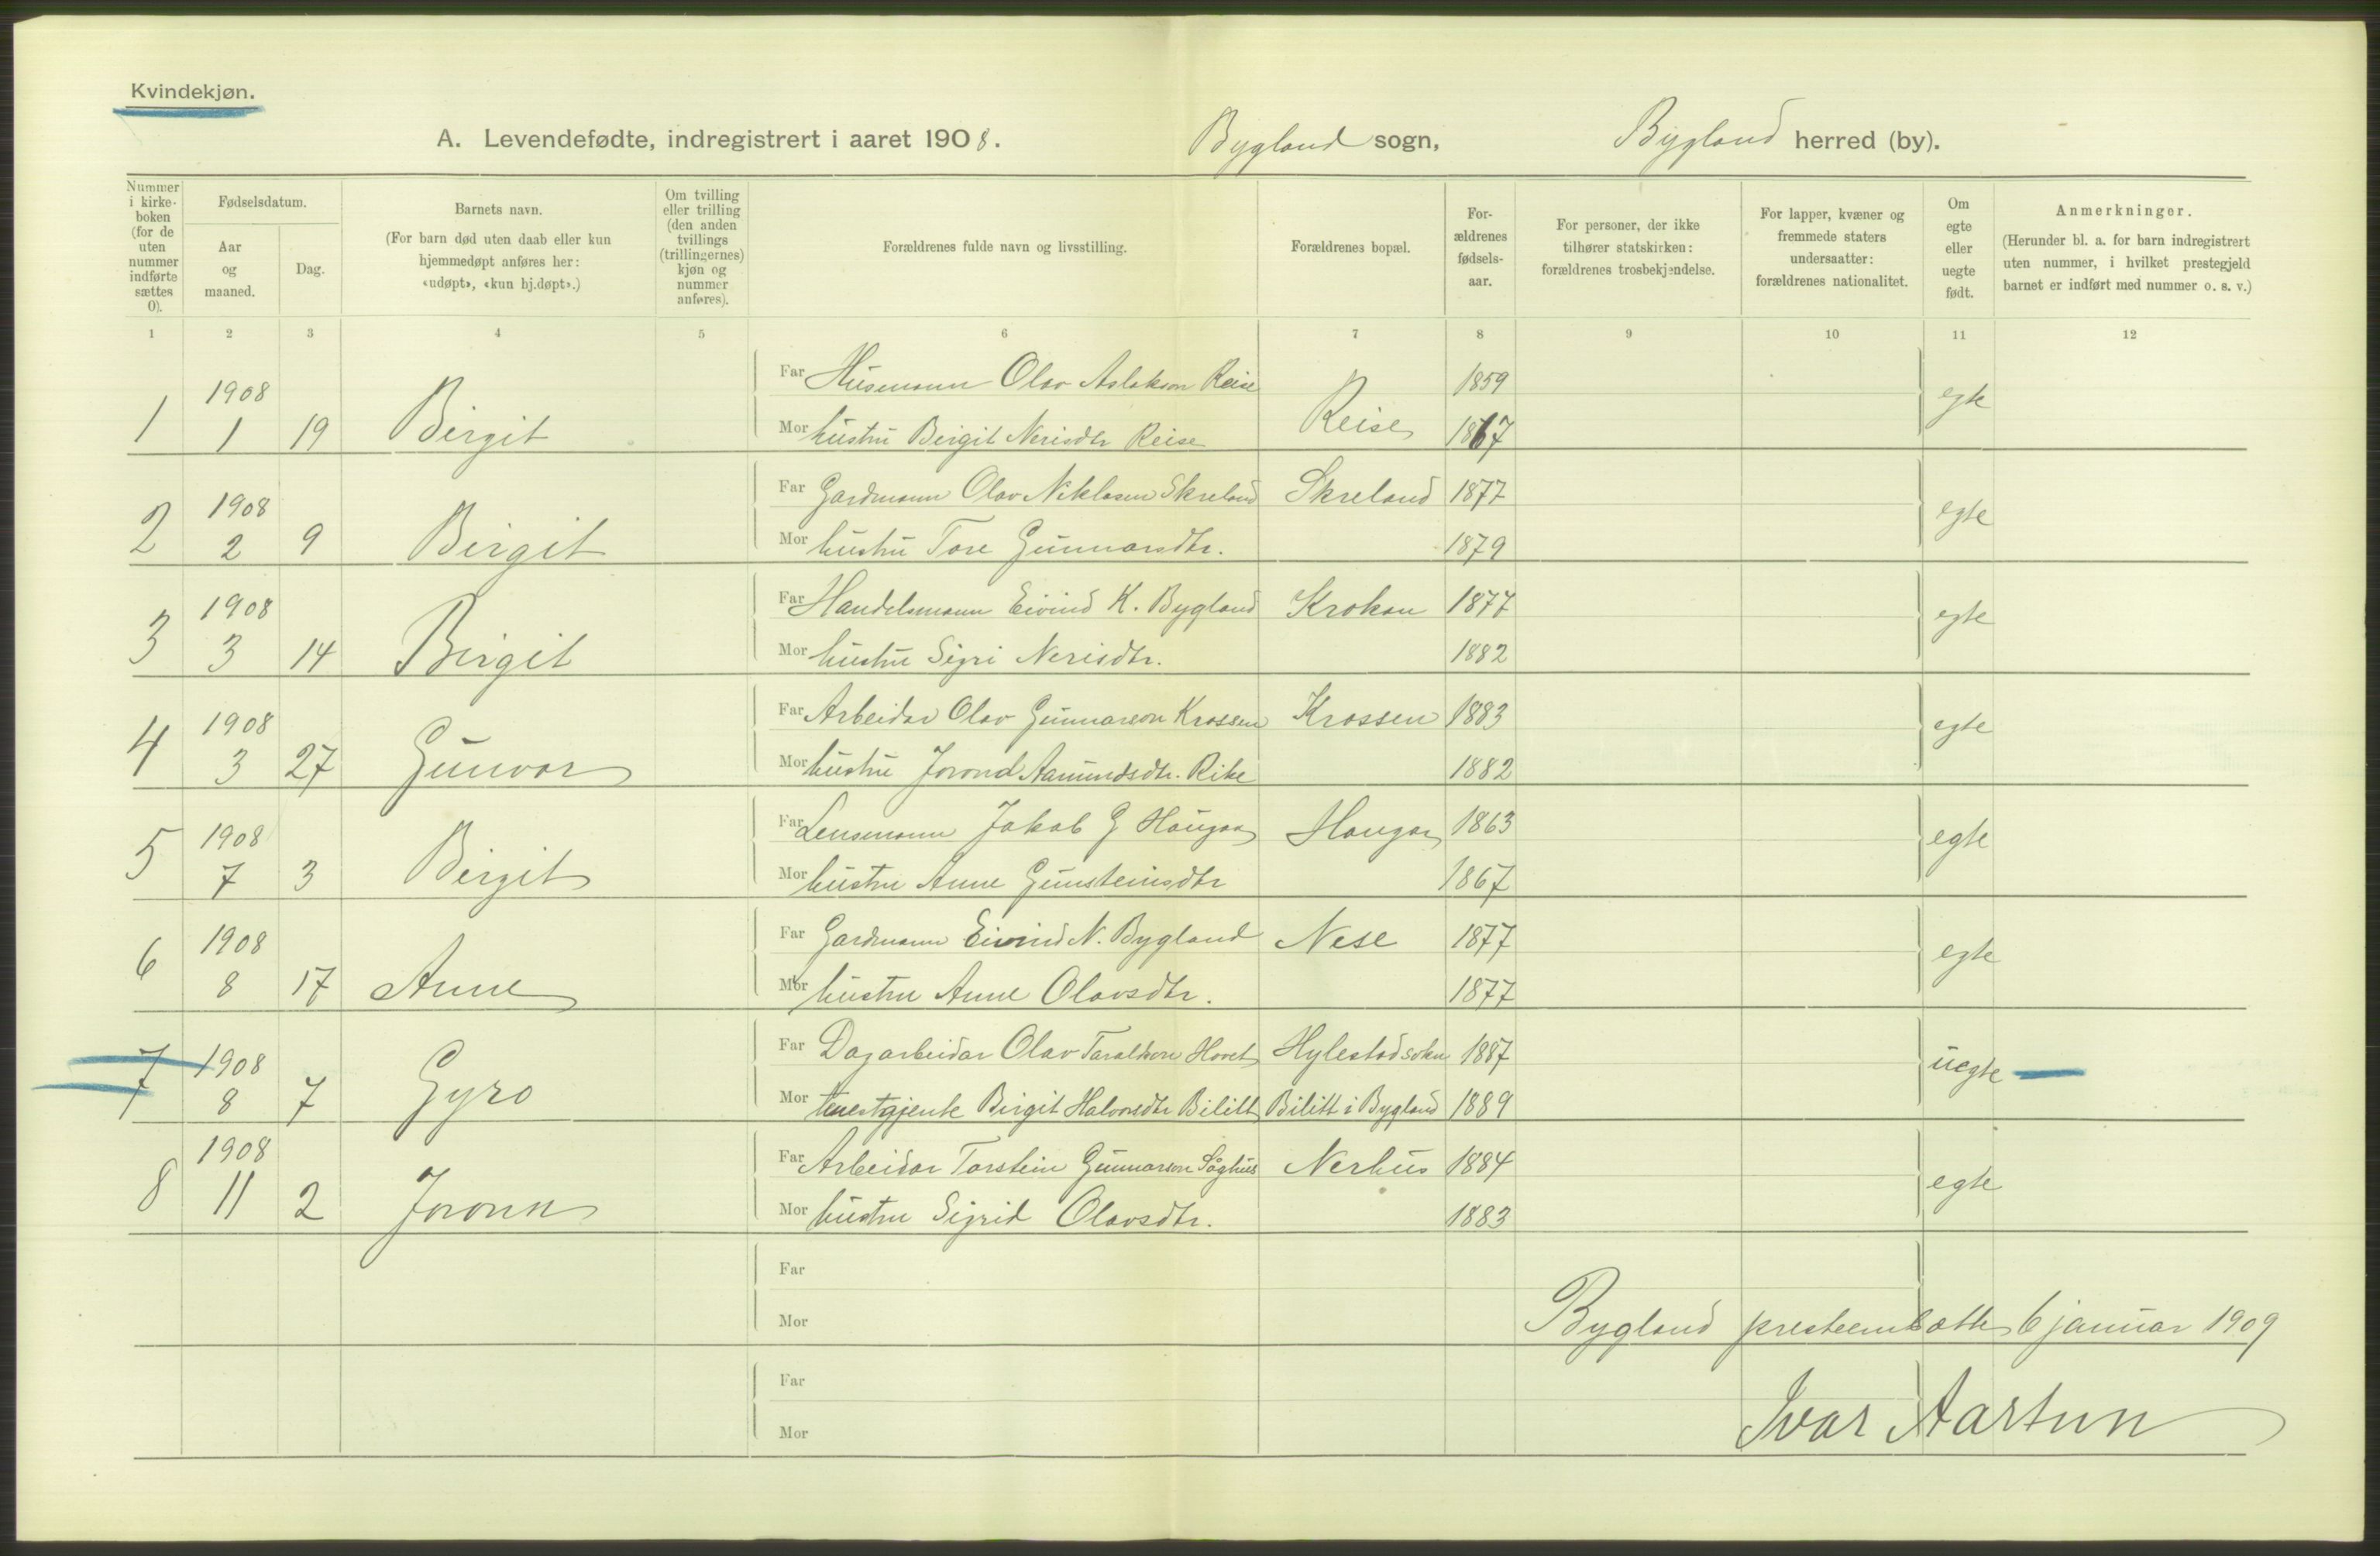 Kvindekjøn.
A. Levendefødte, indregistrert i aaret 1908. Bygland sogn, Bygland herred (by).
Nummer i kirke-boken (for de uten nummer indførte sættes 0).
Fødselsdatum.
Aar og maaned.
Dag.
Barnets navn.
(For barn død uten daab eller kun hjemmedøpt anføres her: «udøpt», «kun hj.døpt».)
Om tvilling eller trilling (den anden tvillings (trillingernes) kjøn og nummer anføres).
Forældrenes fulde navn og livsstilling.
Forældrenes bopæl.
For-ældrenes fødsels-aar.
For personer, der ikke tilhører statskirken: forældrenes trosbekjendelse.
For lapper, kvæner og fremmede staters undersaatter: forældrenes nationalitet.
Om egte eller uegte født.
Anmerkninger.
(Herunder bl. a. for barn indregistrert uten nummer, i hvilket prestegjeld barnet er indført med nummer o. s. v.)
1 2 3 4 5 6 7 8 9 10 11 12
1 1908 1 19 Birgit
Far Husmann Olav Aslakson Reise Reise 1859 egte
Mor hustru Birgit Nerisdtr Reise 1867
2 1908 2 9 Birgit
Far Gardmann Olav Niklasson Skreland Skreland 1877 egte
Mor hustru Tore Gunnarsdtr. 1879
3 1908 3 14 Birgit
Far Handelsmann Eivind K. Bygland Krokan 1877 egte
Mor hustru Sigri Nerisdtr. 1882
4 1908 3 27 Gunvor
Far Arbeidar Olav Gunnarson Krossen Krossen 1883 egte
Mor hustru Jorond Aamundsdtr. Rike 1882
5 1908 7 3 Birgit
Far Lensmann Jakob G Haugaa Haugaa 1863 egte
Mor hustru Anne Gunsteinsdtr 1867
6 1908 8 17 Anne
Far Gardmann Eivind N. Bygland Nese 1877 egte
Mor hustru Anne Olavsdtr. 1877
7 1908 8 7 Gyro
Far Dagarbeidar Olav Taraldson Hovet Hylestad sokn 1887 uegte
Mor tenestgjente Birgit Halvorsdtr Bilitt Bilitt i Bygland 1889
8 1908 11 2 Joronn
Far Arbeidar Torstein Gunnarson Såghus Nerhus 1884 egte
Mor hustru Sigrid Olavsdtr. 1883
Far
Mor
Bygland presteembætte 6 januar 1909
Far
Ivar Aartun
Mor